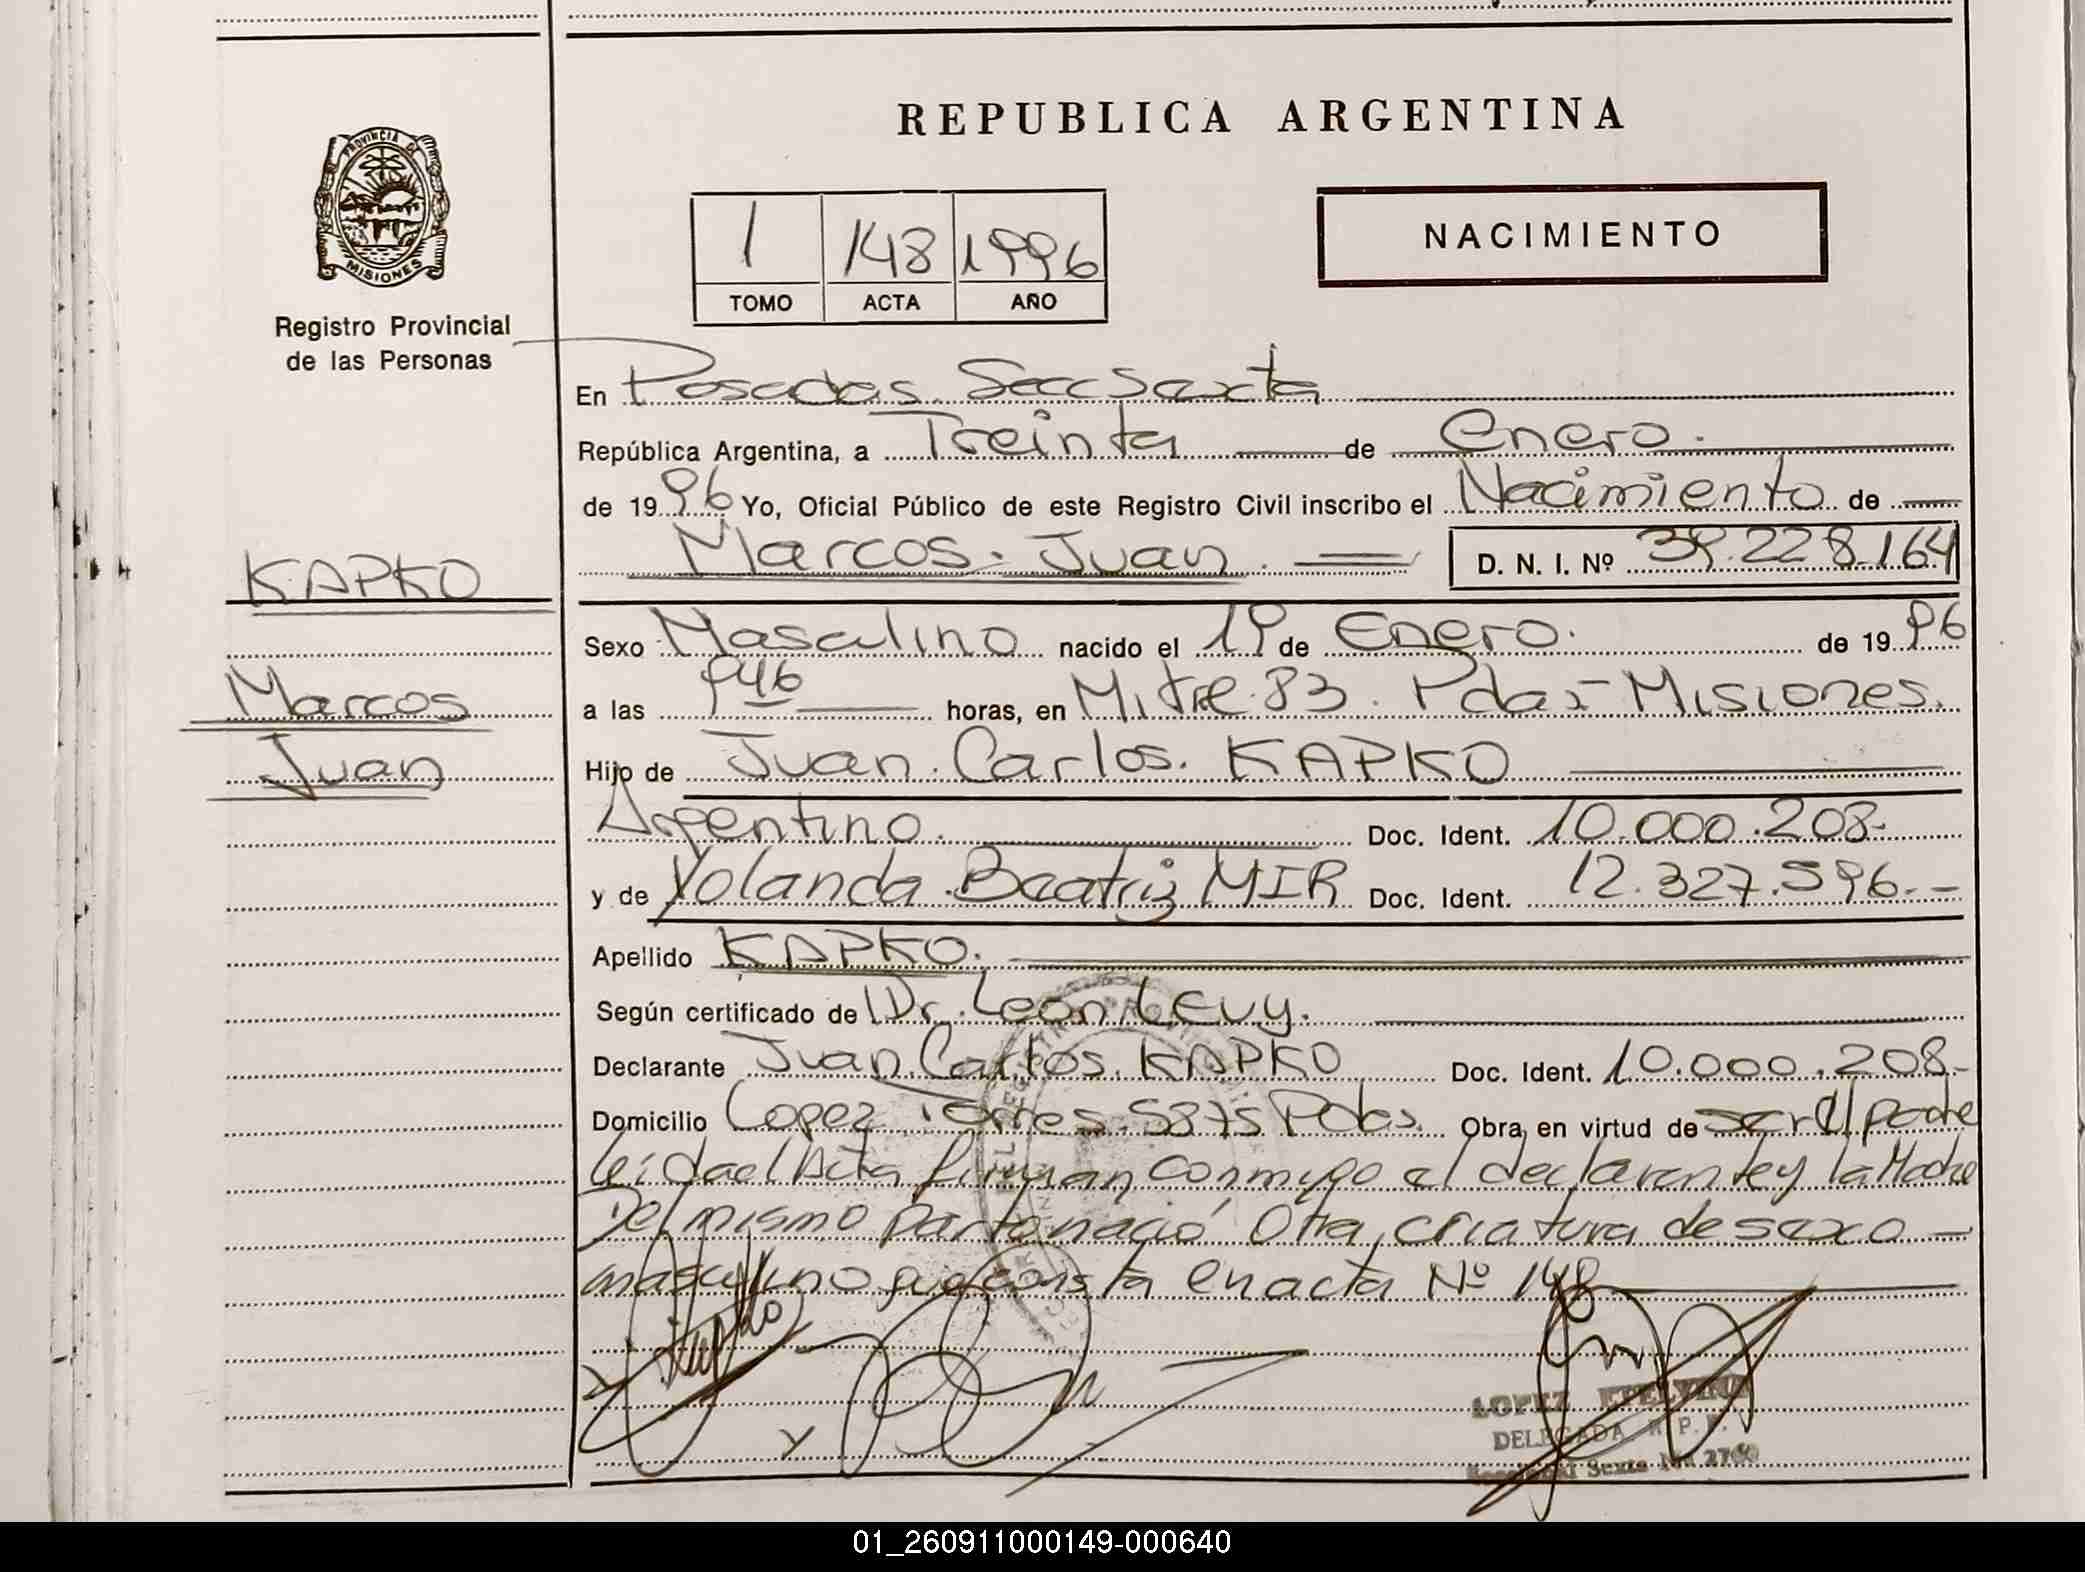 REPUBLICA ARGENTINA
PROVINCIA DE
MISIONES
Registro Provincial
de las Personas
1 148 1996
TOMO ACTA AÑO
NACIMIENTO
En Posadas Secc Sexta
República Argentina, a Treinta de Enero.
de 1996 Yo, Oficial Público de este Registro Civil inscribo el Nacimiento de
Marcos Juan. D. N. I. Nº 39.228.164
KAPKO
Marcos
Juan
Sexo Masculino nacido el 19 de Enero. de 1996
a las 946 horas, en Mitre 83. Pdas - Misiones.
Hijo de Juan Carlos. KAPKO
Argentino. Doc. Ident. 10.000.208-
y de Yolanda Beatriz MIR Doc. Ident. 12.327.596.-
Apellido KAPKO.
Según certificado de Dr. Leon LEVY.
Declarante Juan Carlos. KAPKO Doc. Ident. 10.000.208-
Domicilio Lopez Torres 5875 Pdas. Obra, en virtud de ser el padre
leida el Acta firman conmigo el declarante y la Madre
Del mismo parto nació Otra, criatura de sexo -
masculino que consta en acta Nº 148
LOPEZ ETELVINA
DELEGADA R. P. P.
Seccional Sexta
01_260911000149-000640